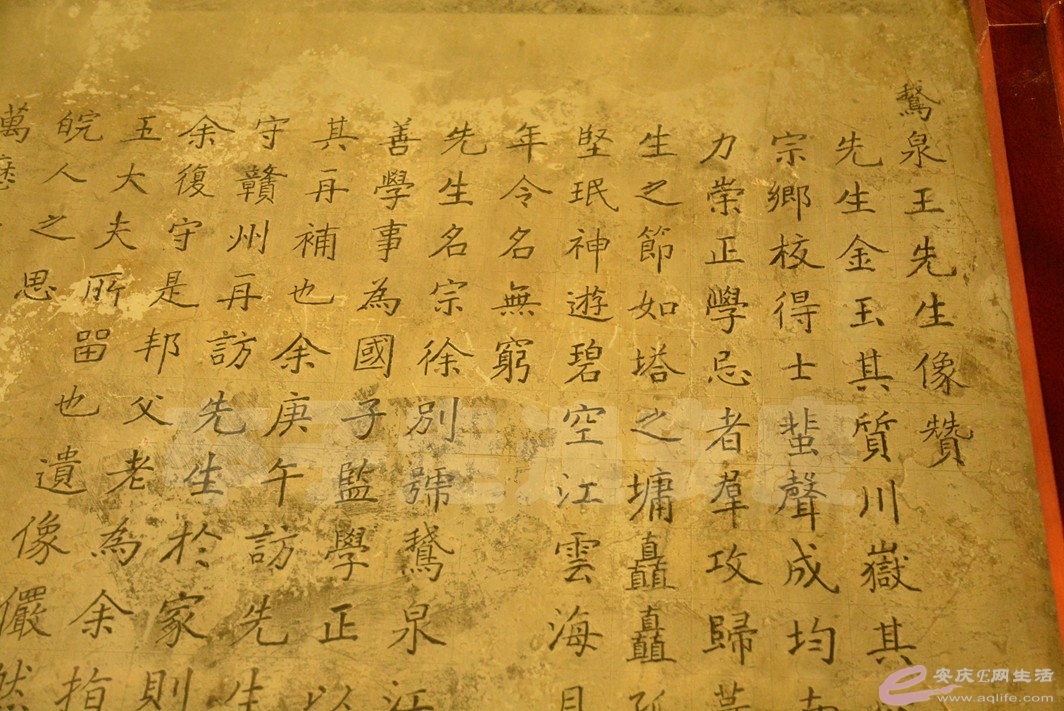 鵞泉王先生像贊
先生金玉其質川嶽其
宗鄉校得士蜚聲成均南
力崇正學忌者羣攻歸
生之節如塔之墉矗矗孤
堅珉神遊碧空江雲海月
年令名無窮
先生名宗徐別號鵞泉江
善學事為國子監學正以
其再補也余庚午訪先生
守贛州再訪先生於家則
余復守是邦父老為余指
五大夫所畱也遺像儼然
皖人之思
萬曆
安庆E网生活
www.aqlife.com